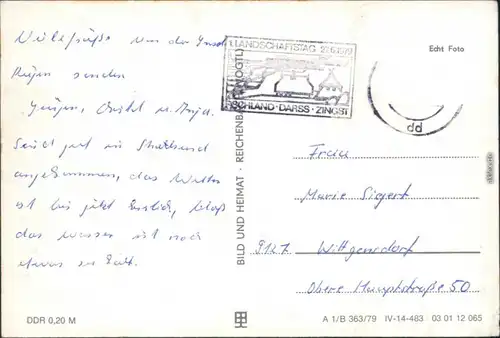 Viele Grüße von der Insel
Rügen senden
Jürgen, Christel u. Anja.
Sind gut in Stralsund
angekommen, das Wetter
ist bis jetzt herrlich, bloß
das wasser ist noch
etwas zu kalt.
DDR 0,20 M
BILD UND HEIMAT · REICHENBACH (VOGTL)
LANDSCHAFTSTAG
SCHLAND · DARSS · ZINGST
Echt Foto
Frau
Marie Siegert
9127 Wittgensdorf
Obere Hauptstraße 50
A 1/B 363/79 IV-14-483 03 01 12 065